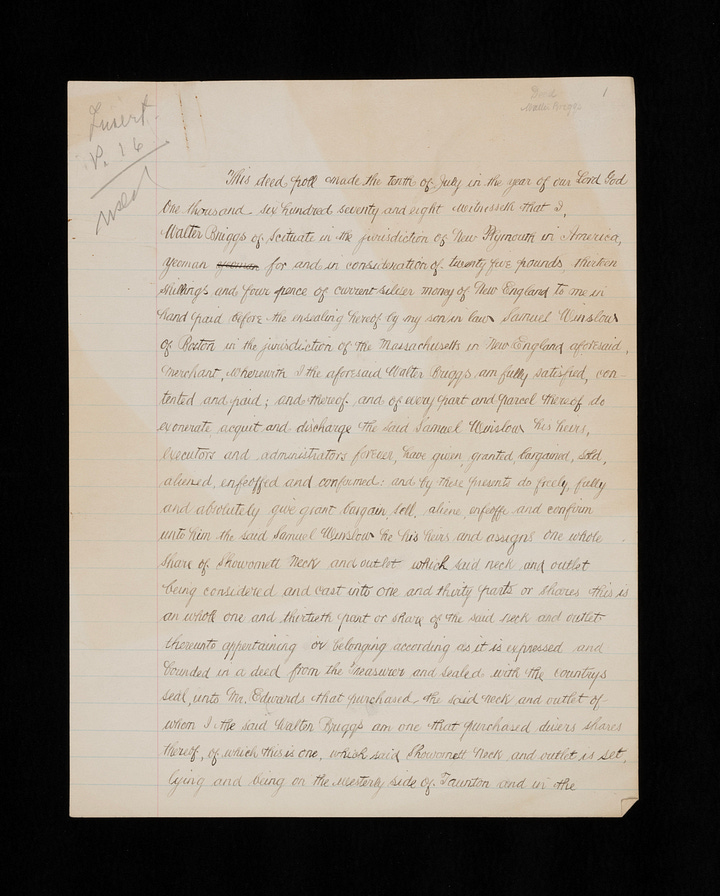 Insert
P. 16
used
Deed
Walter Briggs
1
This deed poll made the tenth of July in the year of our Lord God
One thousand six hundred seventy and eight witnesseth that I,
Walter Briggs of Scituate in the jurisdiction of New Plymouth in America,
yeoman yeoman for and in consideration of twenty five pounds thirteen
shillings and four pence of current silver money of New England to me in
hand paid before the ensealing hereof by my son in law Samuel Winslow
of Boston in the jurisdiction of the Massachusetts in New England aforesaid,
merchant, wherewith I the aforesaid Walter Briggs am fully satisfied, con-
tented and paid; and thereof and of every part and parcel thereof do
exonerate, acquit and discharge the said Samuel Winslow his heirs,
executors and administrators forever, have given, granted, bargained, sold,
aliened, enfeoffed and confirmed: and by these presents do freely, fully
and absolutely give grant bargain, sell, aliene, enfeoffe and confirm
unto him the said Samuel Winslow he his heirs and assigns one whole
share of Showomett Neck and outlet which said neck and outlet
being considered and cast into one and thirty parts or shares this is
an whole one and thirtieth part or share of the said neck and outlet
thereunto appertaining or belonging according as it is expressed and
bounded in a deed from the Treasurer and sealed with the countrys
seal, unto Mr. Edwards that purchased the said neck and outlet of
whom I the said Walter Briggs am one that purchased divers shares
thereof, of which this is one, which said Showomett Neck and outlet is set,
lying and being on the westerly side of Taunton and in the